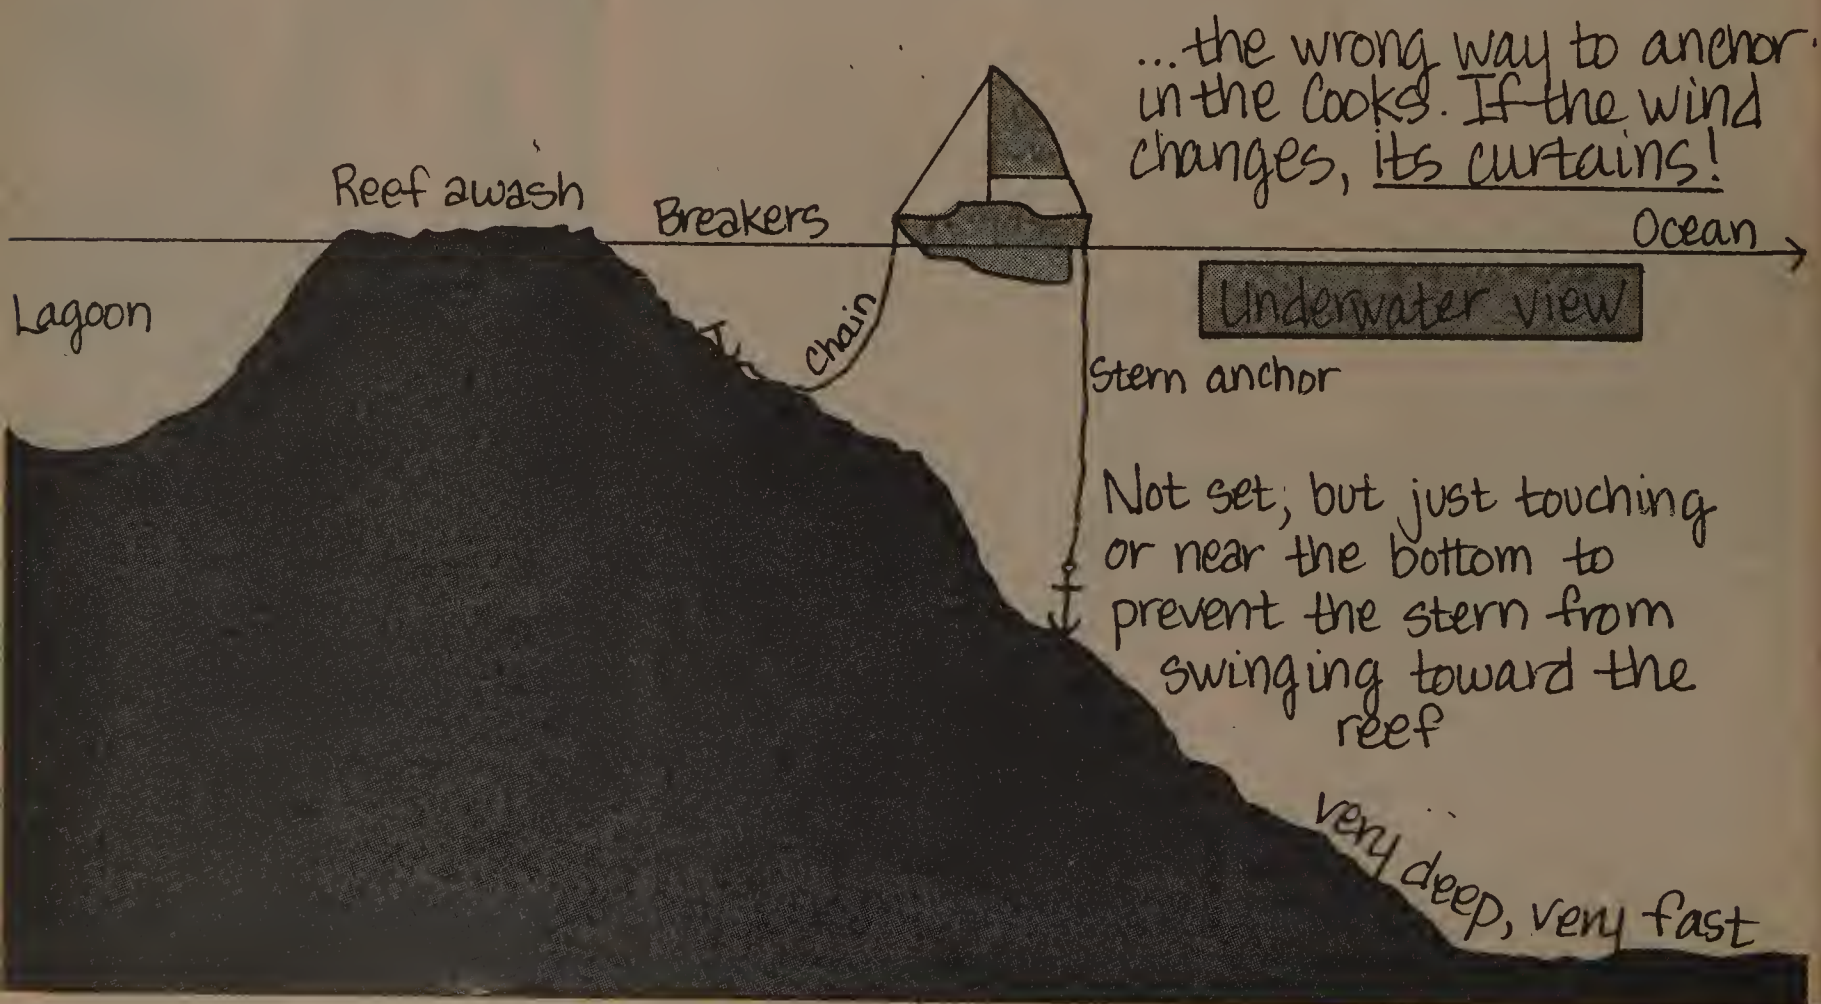 ...the wrong way to anchor
in the Cooks. If the wind
changes, its curtains!
Reef awash
Breakers
Ocean
Lagoon
Chain
Underwater view
Stern anchor
Not set, but just touching
or near the bottom to
prevent the stern from
swinging toward the
reef
very deep, very fast